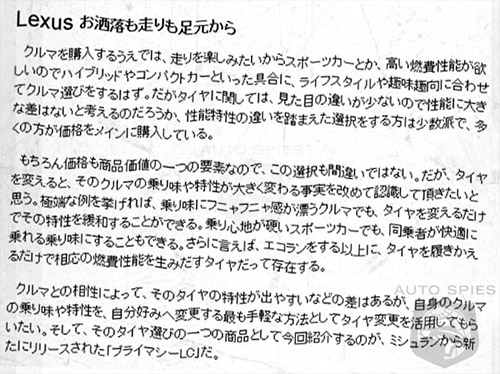 Lexus お洒落も走りも足元から
クルマを購入するうえでは、走りを楽しみたいからスポーツカーとか、高い燃費性能が欲
しいのでハイブリッドやコンパクトカーといった具合に、ライフスタイルや趣味趣向に合わせ
てクルマ選びをするはず。だがタイヤに関しては、見た目の違いが少ないので性能に大き
な差はないと考えるのだろうか、性能特性の違いを踏まえた選択をする方は少数派で、多
くの方が価格をメインに購入している。
もちろん価格も商品価値の一つの要素なので、この選択も間違いではない。だが、タイヤ
を変えると、そのクルマの乗り味や特性が大きく変わる事実を改めて認識して頂きたいと
思う。極端な例を挙げれば、乗り味にフニャフニャ感が漂うクルマでも、タイヤを変えるだけ
でその特性を緩和することができる。乗り心地が硬いスポーツカーでも、同乗者が快適に
乗れる乗り味にすることもできる。さらに言えば、エコランをする以上に、タイヤを履きかえ
るだけで相応の燃費性能を生みだすタイヤだって存在する。
クルマとの相性によって、そのタイヤの特性が出やすいなどの差はあるが、自身のクルマ
の乗り味や特性を、自分好みへ変更する最も手軽な方法としてタイヤ変更を活用してもら
いたい。そして、そのタイヤ選びの一つの商品として今回紹介するのが、ミシュランから新
たにリリースされた「プライマシーLC」だ。
AUTO SPIES
AUTO SPIES